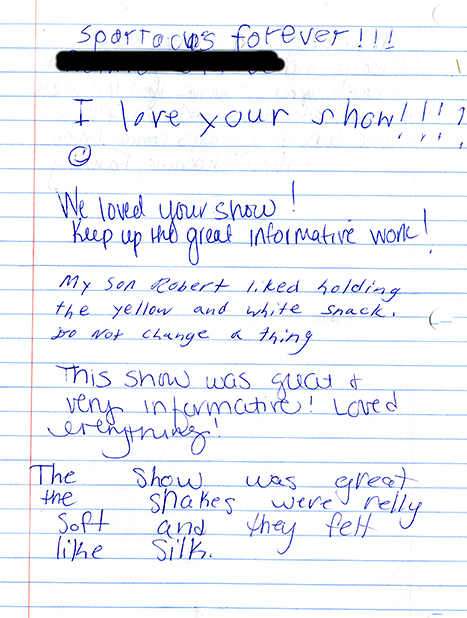 Spartacus forever!!!
I love your show!!!!
We loved your show!
Keep up the great informative work!
My son Robert liked holding
the yellow and white snack.
Do not change a thing
This show was great &
very informative! Loved
everything!
The show was great
the snakes were relly
soft and they felt
like silk.